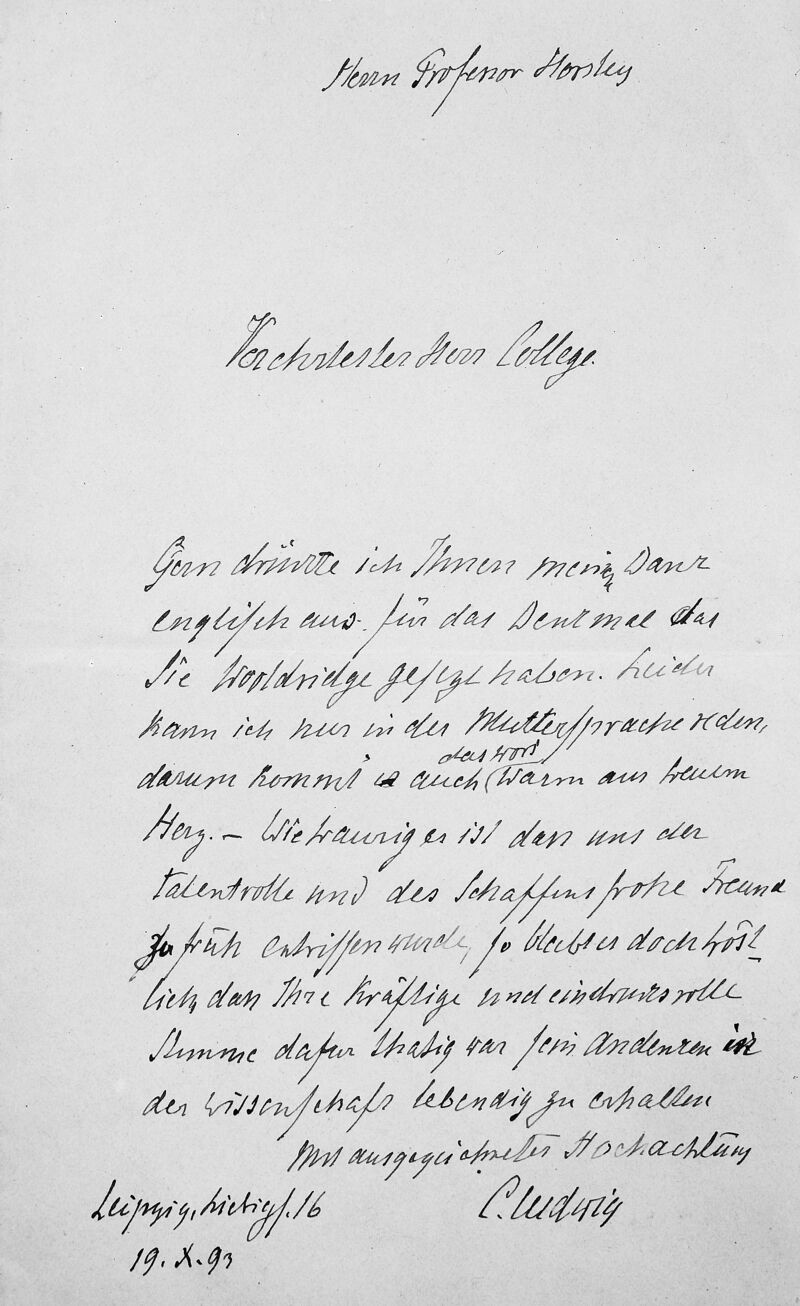 Herrn Professor Horsley
Verehrtester Herr College.
Gern drückte ich Ihnen meinen Dank
englisch aus für das Denkmal das
Sie Wooldridge gesezt haben. Leider
kann ich nur in der Muttersprache reden,
das wort
darum kommt auch warm aus treuem
Herz. – Wie traurig es ist dass uns der
talentvolle und des Schaffens frohe Freund
zu früh entrissen wurde, so bleibt es doch tröst-
lich, dass Ihre kräftige und eindrucksvolle
Stimme dafur thatig war sein Andenken in
der Wissenschaft lebendig zu erhalten
Mit ausgezeichneter Hochachtung
Leipzig, Liebigs. 16 C. Ludwig
19. X. 93